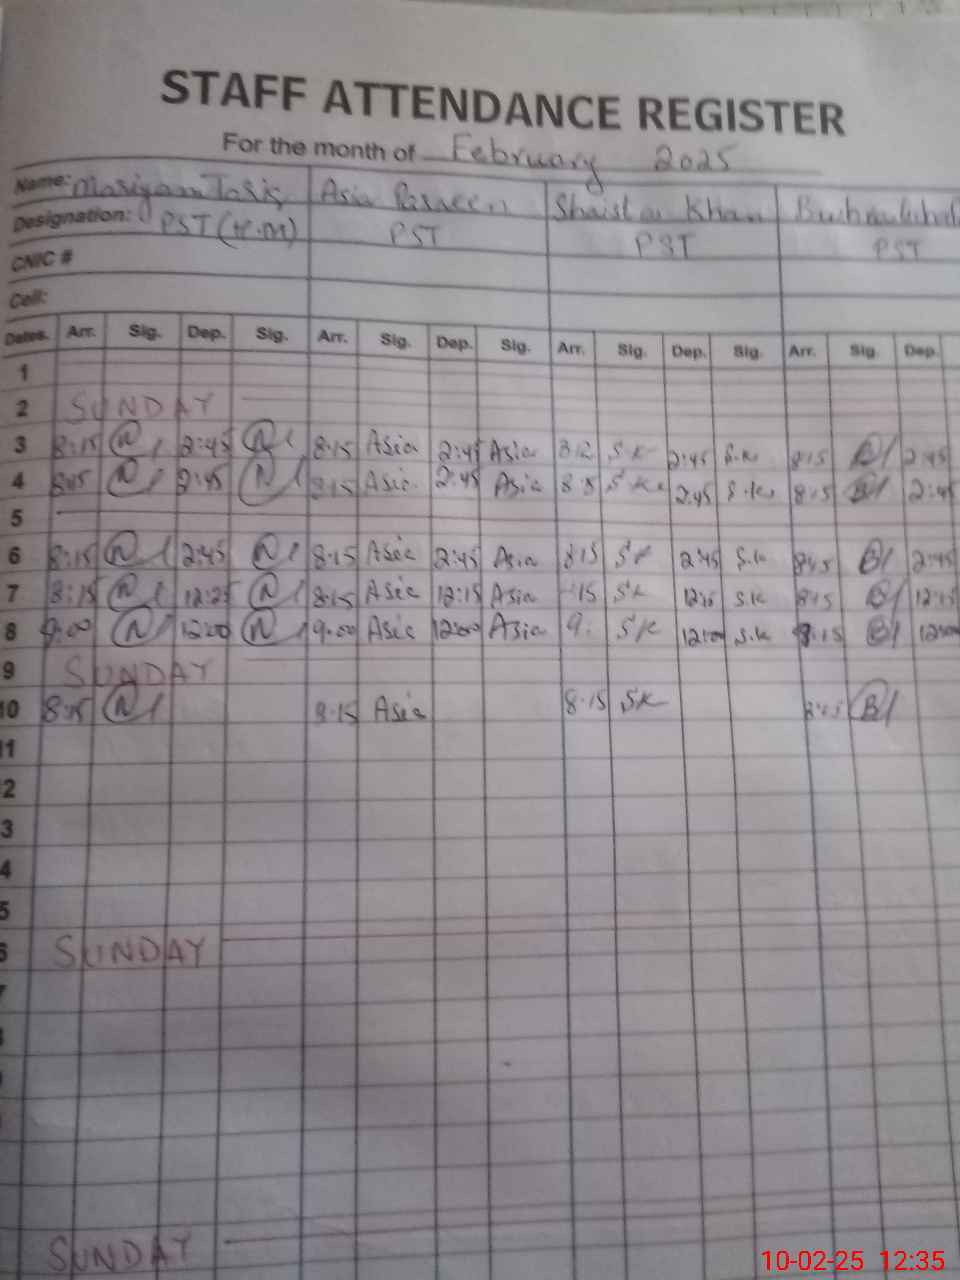 STAFF ATTENDANCE REGISTER
For the month of February 2025
Name: Asia Parveen Shaista Khan
Designation: PST (H.M) PST PST PST
CNIC #
Cell:
Dates. Arr. Sig. Dep. Sig. Arr. Sig. Dep. Sig. Arr. Sig. Dep. Sig. Arr. Sig. Dep.
1
2 SUNDAY
3 8:15 2:45 8:15 Asia 2:45 Asia S.K 2:45 S.K 8:15 B 2:45
4 2:45 8:15 Asia 2:45 Asia S.K 2:45 S.K 8:15 B 2:45
5
6 8:15 2:45 8:15 Asia 2:45 Asia 8:15 SK 2:45 S.K B 2:45
7 8:15 8:15 Asia 12:15 Asia :15 SK S.K 8:15 B 12:15
8 9:00 12:00 9:00 Asia 12:00 Asia 9: SK 12:00 S.K B 12:00
9 SUNDAY
10 8:15 8:15 Asia 8:15 SK B
1
2
3
4
5
6 SUNDAY
SUNDAY
10-02-25 12:35